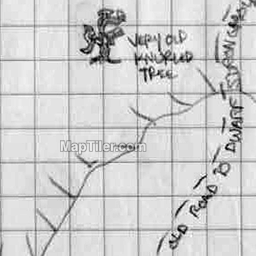 VERY OLD
KNURLED
TREE
MapTiler.com
OLD ROAD TO DWARF